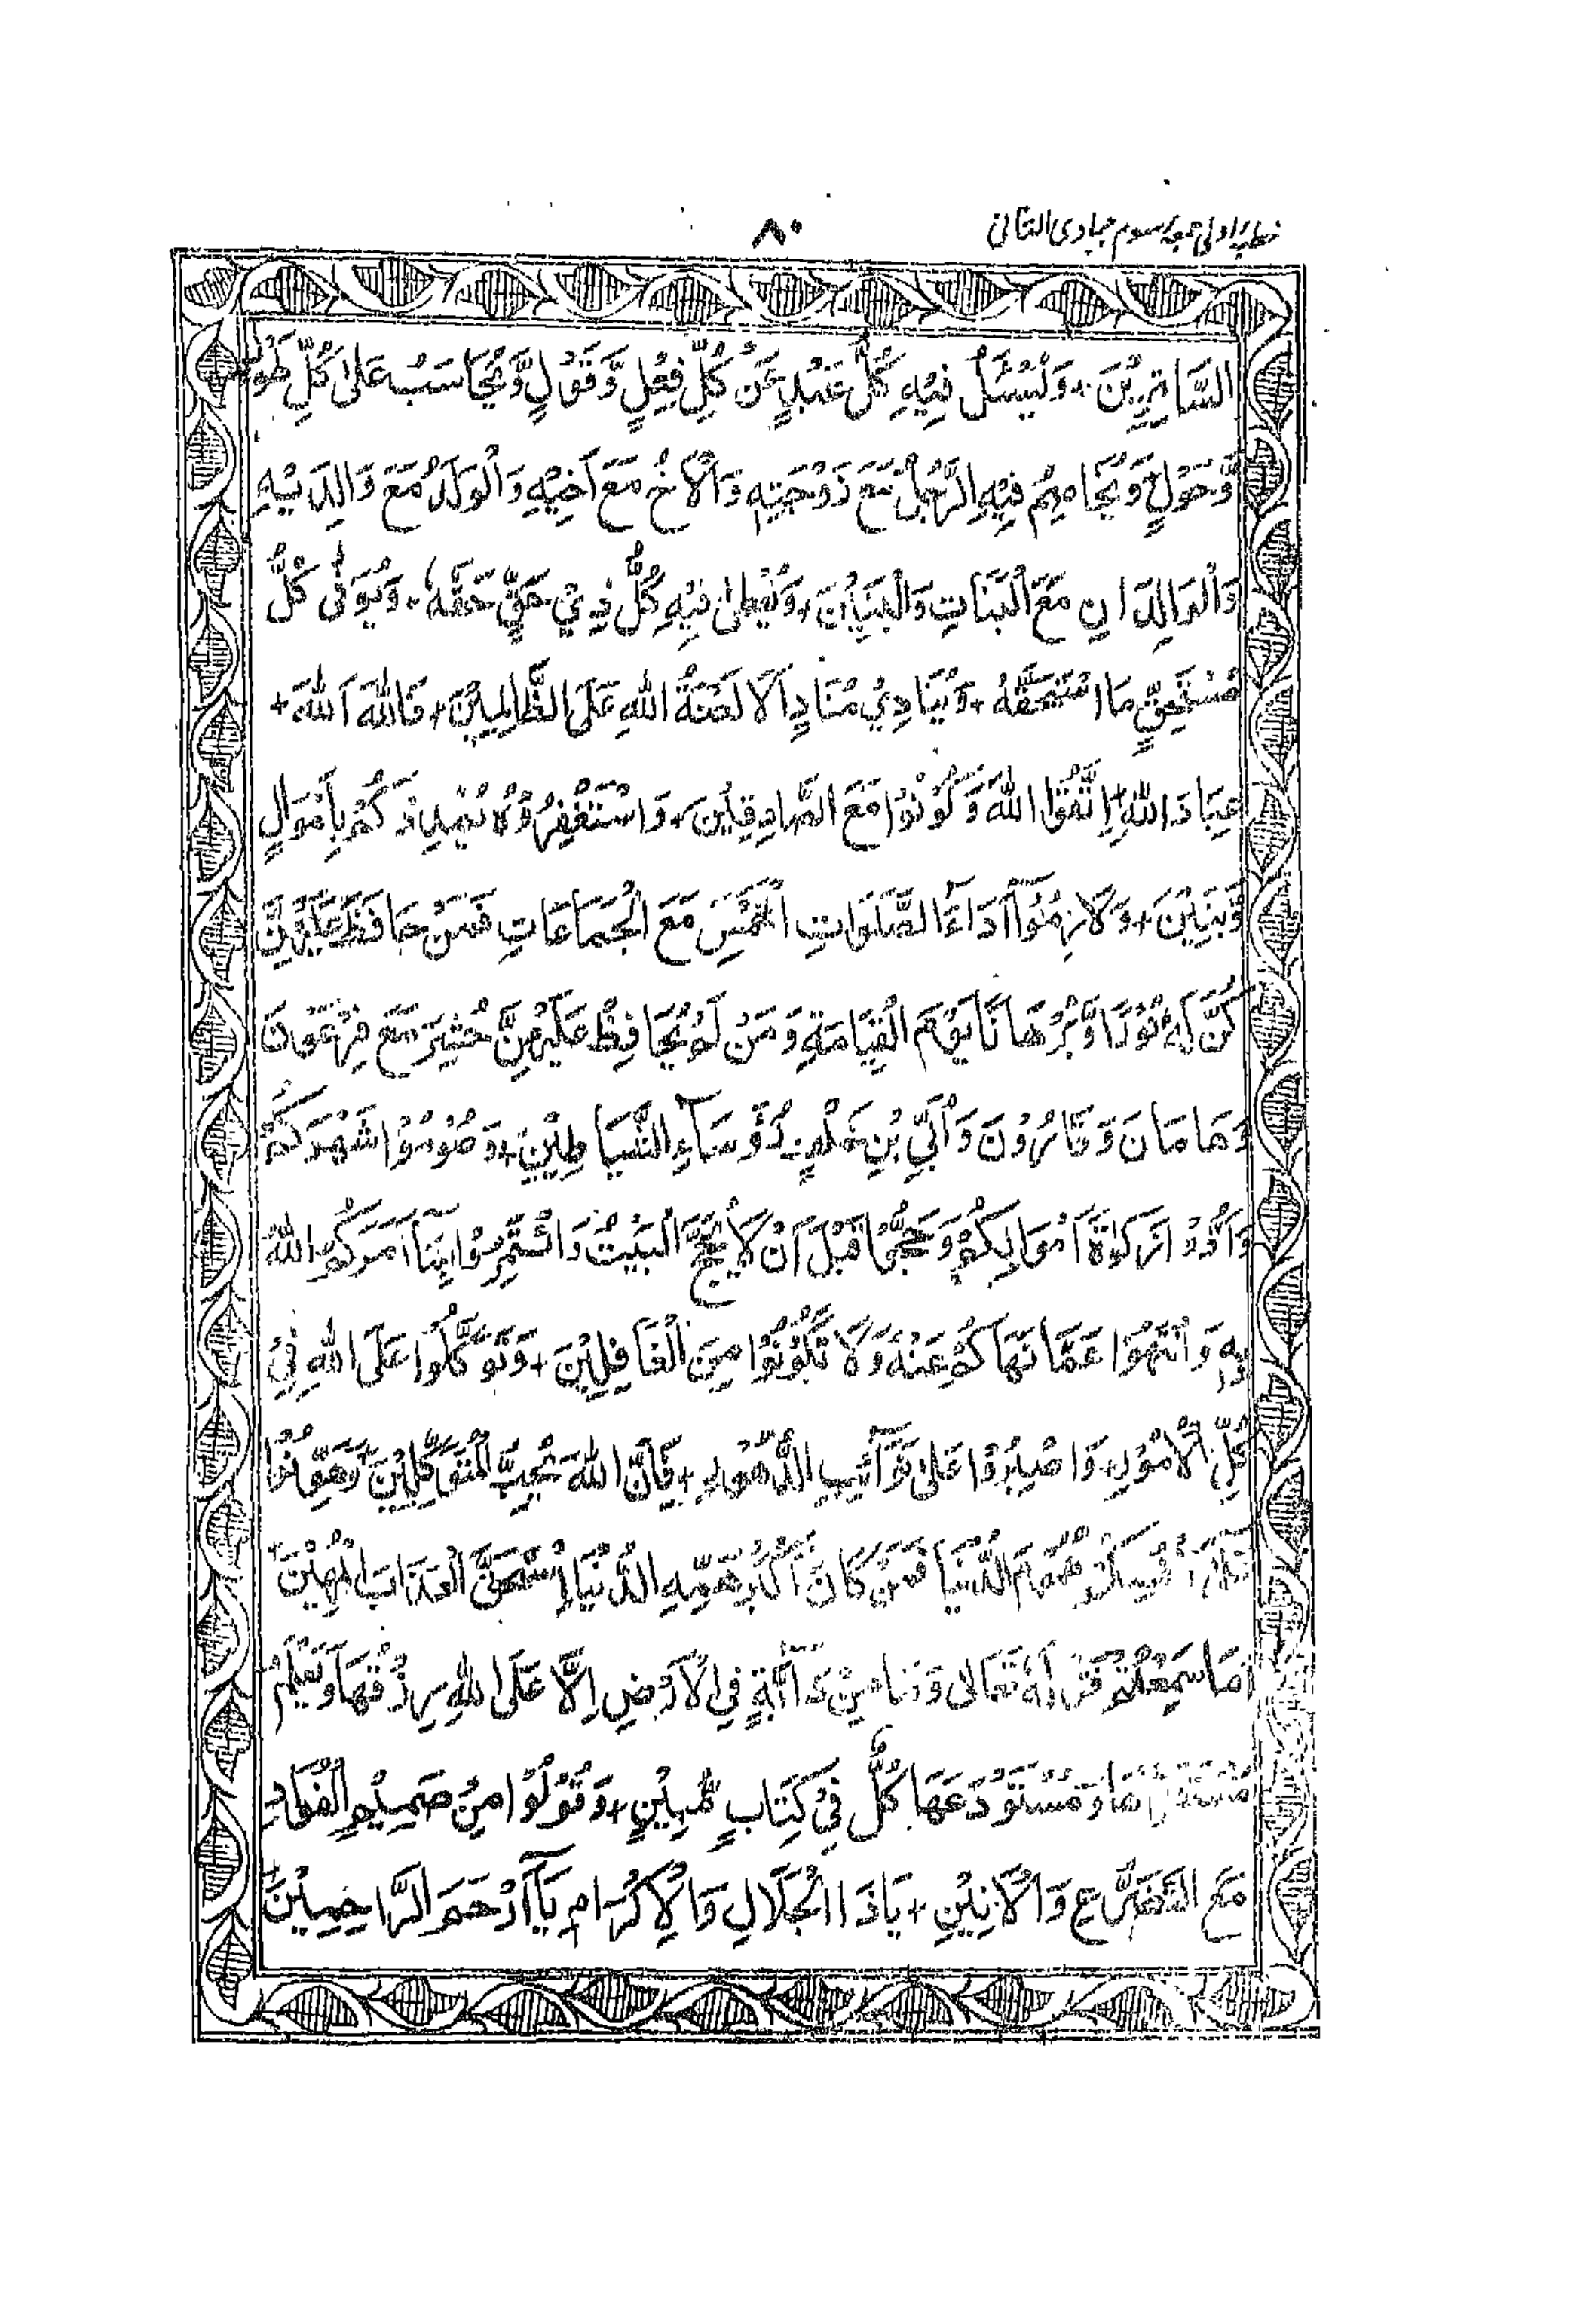 خطبۂ اولی جمعہ سوم جمادی الثانی
۸۰
السَّاتِرِيْنَ + وَيُسْئَلُ فِيْهِ كُلُّ عَبْدٍ عَنْ كُلِّ فِعْلٍ وَّقَوْلٍ وَّيُحَاسَبُ عَلىٰ كُلِّ طَوْلٍ
وَّحَوْلٍ وَيُخَاصِمُ فِيْهِ الرَّجُلُ مَعَ زَوْجَتِهٖ وَالْاَخُ مَعَ اَخِيْهِ وَالْوَلَدُ مَعَ وَالِدَيْهِ
وَالْوَالِدَانِ مَعَ الْبَنَاتِ وَالْبَنِيْنَ + وَيُعْطىٰ فِيْهِ كُلُّ ذِيْ حَقٍّ حَقَّهٗ + وَيُوَفّٰى كُلُّ
مُسْتَحِقٍّ مَا اسْتَحَقَّهٗ + وَيُنَادِيْ مُنَادٍ اَلَا لَعْنَةُ اللهِ عَلَى الظَّالِمِيْنَ + فَاللهَ اَللهَ +
عِبَادَ اللهِ اِتَّقُوا اللهَ وَكُوْنُوْا مَعَ الصَّادِقِيْنَ + وَاسْتَغْفِرُوْهُ يُمْدِدْكُمْ بِاَمْوَالٍ
وَّبَنِيْنَ + وَلَازِمُوْٓا اَدَاءَ الصَّلَوَاتِ الْخَمْسِ مَعَ الْجَمَاعَاتِ فَمَنْ حَافَظَ عَلَيْهِنَّ
كُنَّ لَهٗ نُوْرًا وَّبُرْهَانًا يَوْمَ الْقِيَامَةِ وَمَنْ لَمْ يُحَافِظْ عَلَيْهِنَّ حُشِرَ مَعَ فِرْعَوْنَ
وَهَامَانَ وَقَارُوْنَ وَاُبَيِّ بْنِ خَلَفٍ رُؤَسَآءِ الشَّيَاطِيْنِ + وَصُوْمُوْا شَهْرَكُمْ
وَاَدُّوْا زَكٰوةَ اَمْوَالِكُمْ وَحَجُّوْا قَبْلَ اَنْ لَا يُحَجَّ الْبَيْتُ وَائْتَمِرُوْا بِمَآ اَمَرَكُمُ اللهُ
بِهٖ وَانْتَهُوْا عَمَّا نَهَاكُمْ عَنْهُ وَلَا تَكُوْنُوْا مِنَ الْغَافِلِيْنَ + وَتَوَكَّلُوْا عَلَى اللهِ فِيْ
كُلِّ الْاُمُوْرِ + وَاصْبِرُوْا عَلىٰ نَوَآئِبِ الدُّهُوْرِ + فَاِنَّ اللهَ يُحِبُّ الْمُتَوَكِّلِيْنَ
الدُّنْيَا فَمَنْ كَانَ اَكْبَرُ هَمِّهِ الدُّنْيَا اِسْتَحَقَّ الْعَذَابَ الْمُهِيْنَ +
اَمَا سَمِعْتُمْ قَوْلَهٗ تَعَالٰى وَمَا مِنْ دَآبَّةٍ فِي الْاَرْضِ اِلَّا عَلَى اللهِ رِزْقُهَا وَيَعْلَمُ
مُسْتَقَرَّهَا وَمُسْتَوْدَعَهَا كُلٌّ فِيْ كِتَابٍ مُّبِيْنٍ + وَقُوْلُوْا مِنْ صَمِيْمِ الْفُوَادِ
مَعَ التَّضَرُّعِ وَالْاَنِيْنِ + يَا ذَا الْجَلَالِ وَالْاِكْرَامِ يَآ اَرْحَمَ الرَّاحِمِيْنَ +